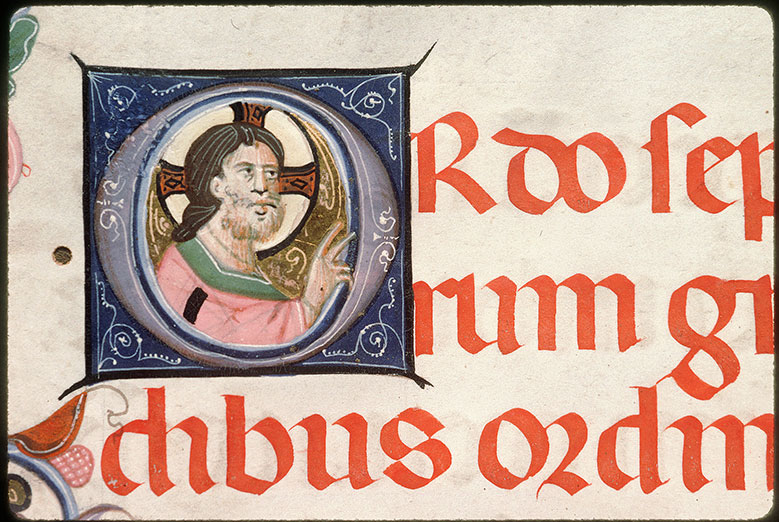 ORdo sep
rum gr
chbus ordin